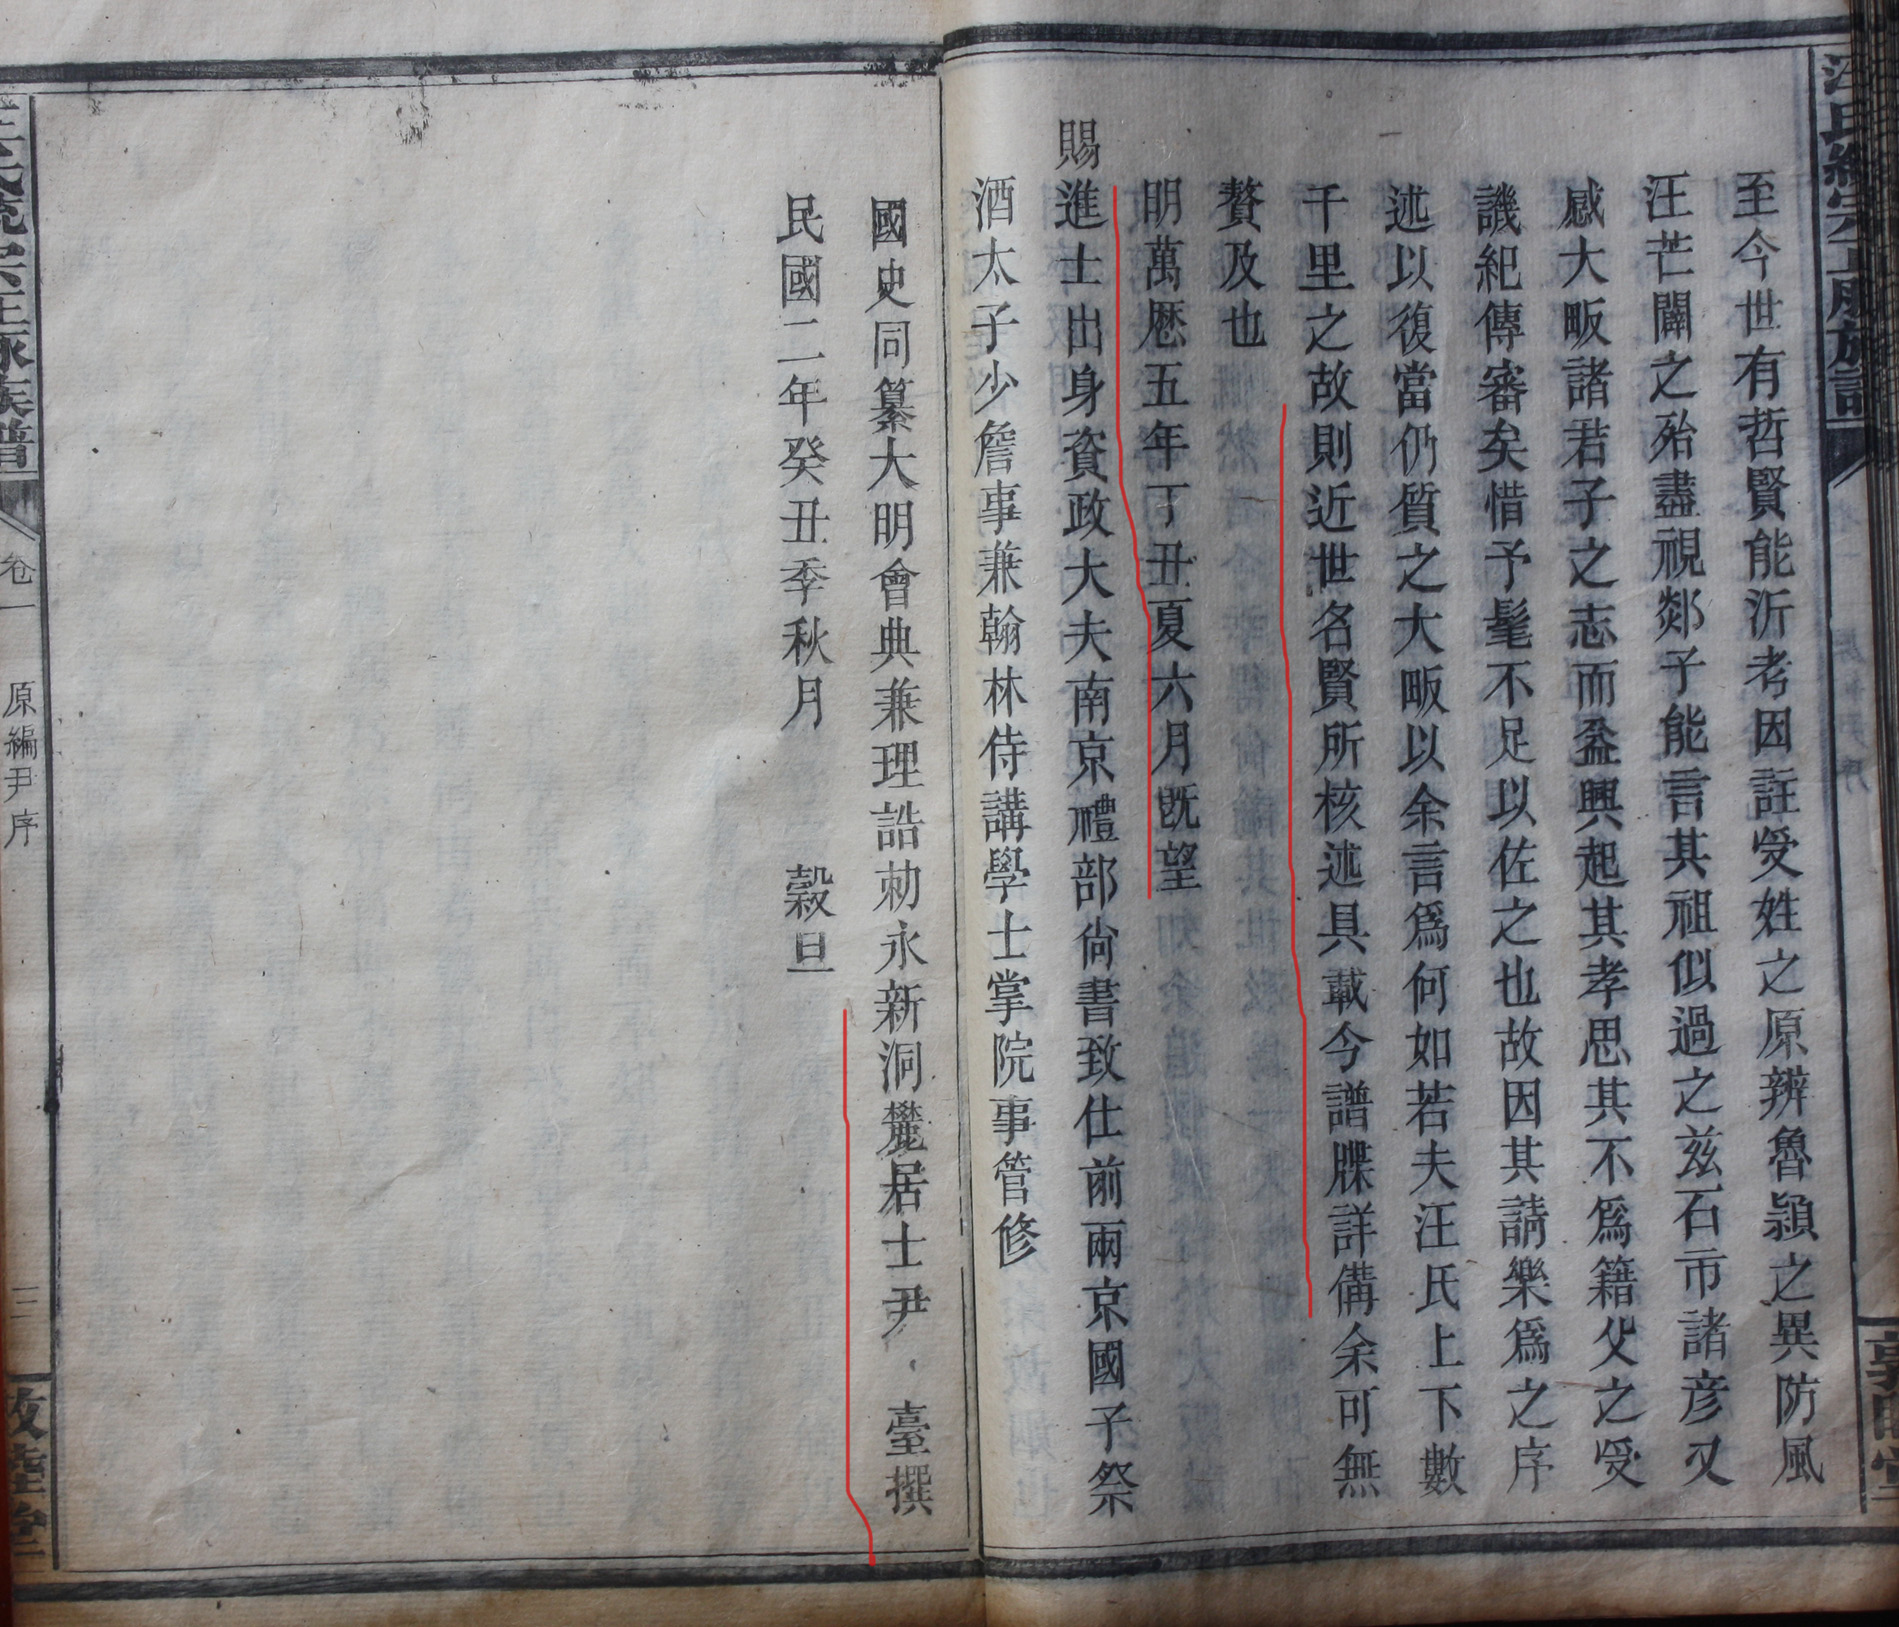 汪氏統宗正脉族譜
至今世有哲賢能沂考因註受姓之原辨魯潁之異防風
汪芒闢之殆盡視郯子能言其祖似過之兹石市諸彦又
感大畈諸君子之志而益興起其孝思其不爲籍父之受
譏紀傳審矣惜予髦不足以佐之也故因其請樂爲之序
述以復當仍質之大畈以余言爲何如若夫汪氏上下數
千里之故則近世名賢所核述具載今譜牒詳備余可無
贅及也
明萬歷五年丁丑夏六月既望
賜進士出身資政大夫南京禮部尚書致仕前兩京國子祭
酒太子少詹事兼翰林侍講學士掌院事管修
國史同纂大明會典兼理誥勅永新洞麓居士尹臺撰
民國二年癸丑季秋月 穀旦
汪氏統宗正脉族譜 卷一 原編尹序 三 敦睦堂